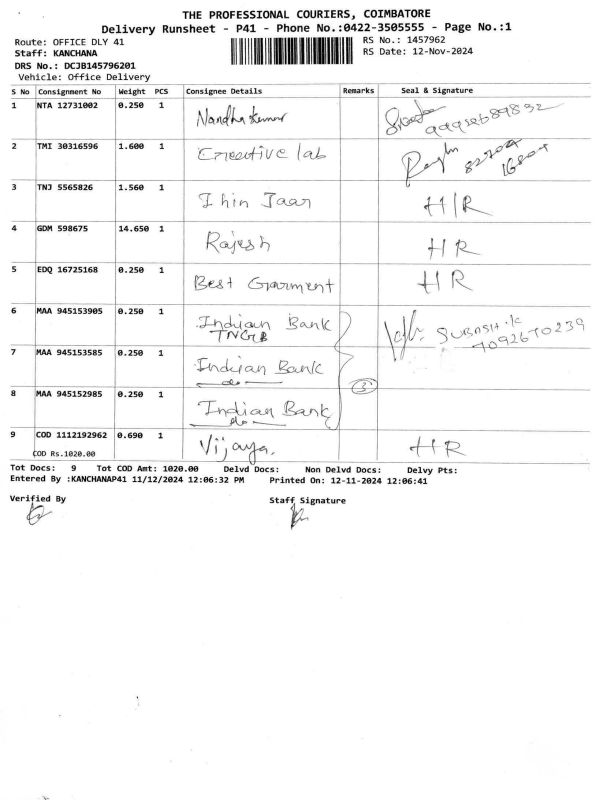 THE PROFESSIONAL COURIERS, COIMBATORE
Delivery Runsheet - P41 - Phone No.:0422-3505555 - Page No.:1
Route: OFFICE DLY 41 RS No.: 1457962
Staff: KANCHANA RS Date: 12-Nov-2024
DRS No.: DCJB145796201
Vehicle: Office Delivery
S No Consignment No Weight PCS Consignee Details Remarks Seal & Signature
1 NTA 12731002 0.250 1 Nandha kumar
2 TMI 30316596 1.600 1 lab
3 TNJ 5565826 1.560 1 H/R
4 GDM 598675 14.650 1 Rajesh HR
5 EDQ 16725168 0.250 1 Best Garment HR
6 MAA 945153905 0.250 1 Indian Bank SUBASH.K
TNGB 7092670239
7 MAA 945153585 0.250 1 Indian Bank
-do- 3
8 MAA 945152985 0.250 1 Indian Bank
-do-
9 COD 1112192962 0.690 1 Vijaya. HR
COD Rs.1020.00
Tot Docs: 9 Tot COD Amt: 1020.00 Delvd Docs: Non Delvd Docs: Delvy Pts:
Entered By :KANCHANAP41 11/12/2024 12:06:32 PM Printed On: 12-11-2024 12:06:41
Verified By Staff Signature